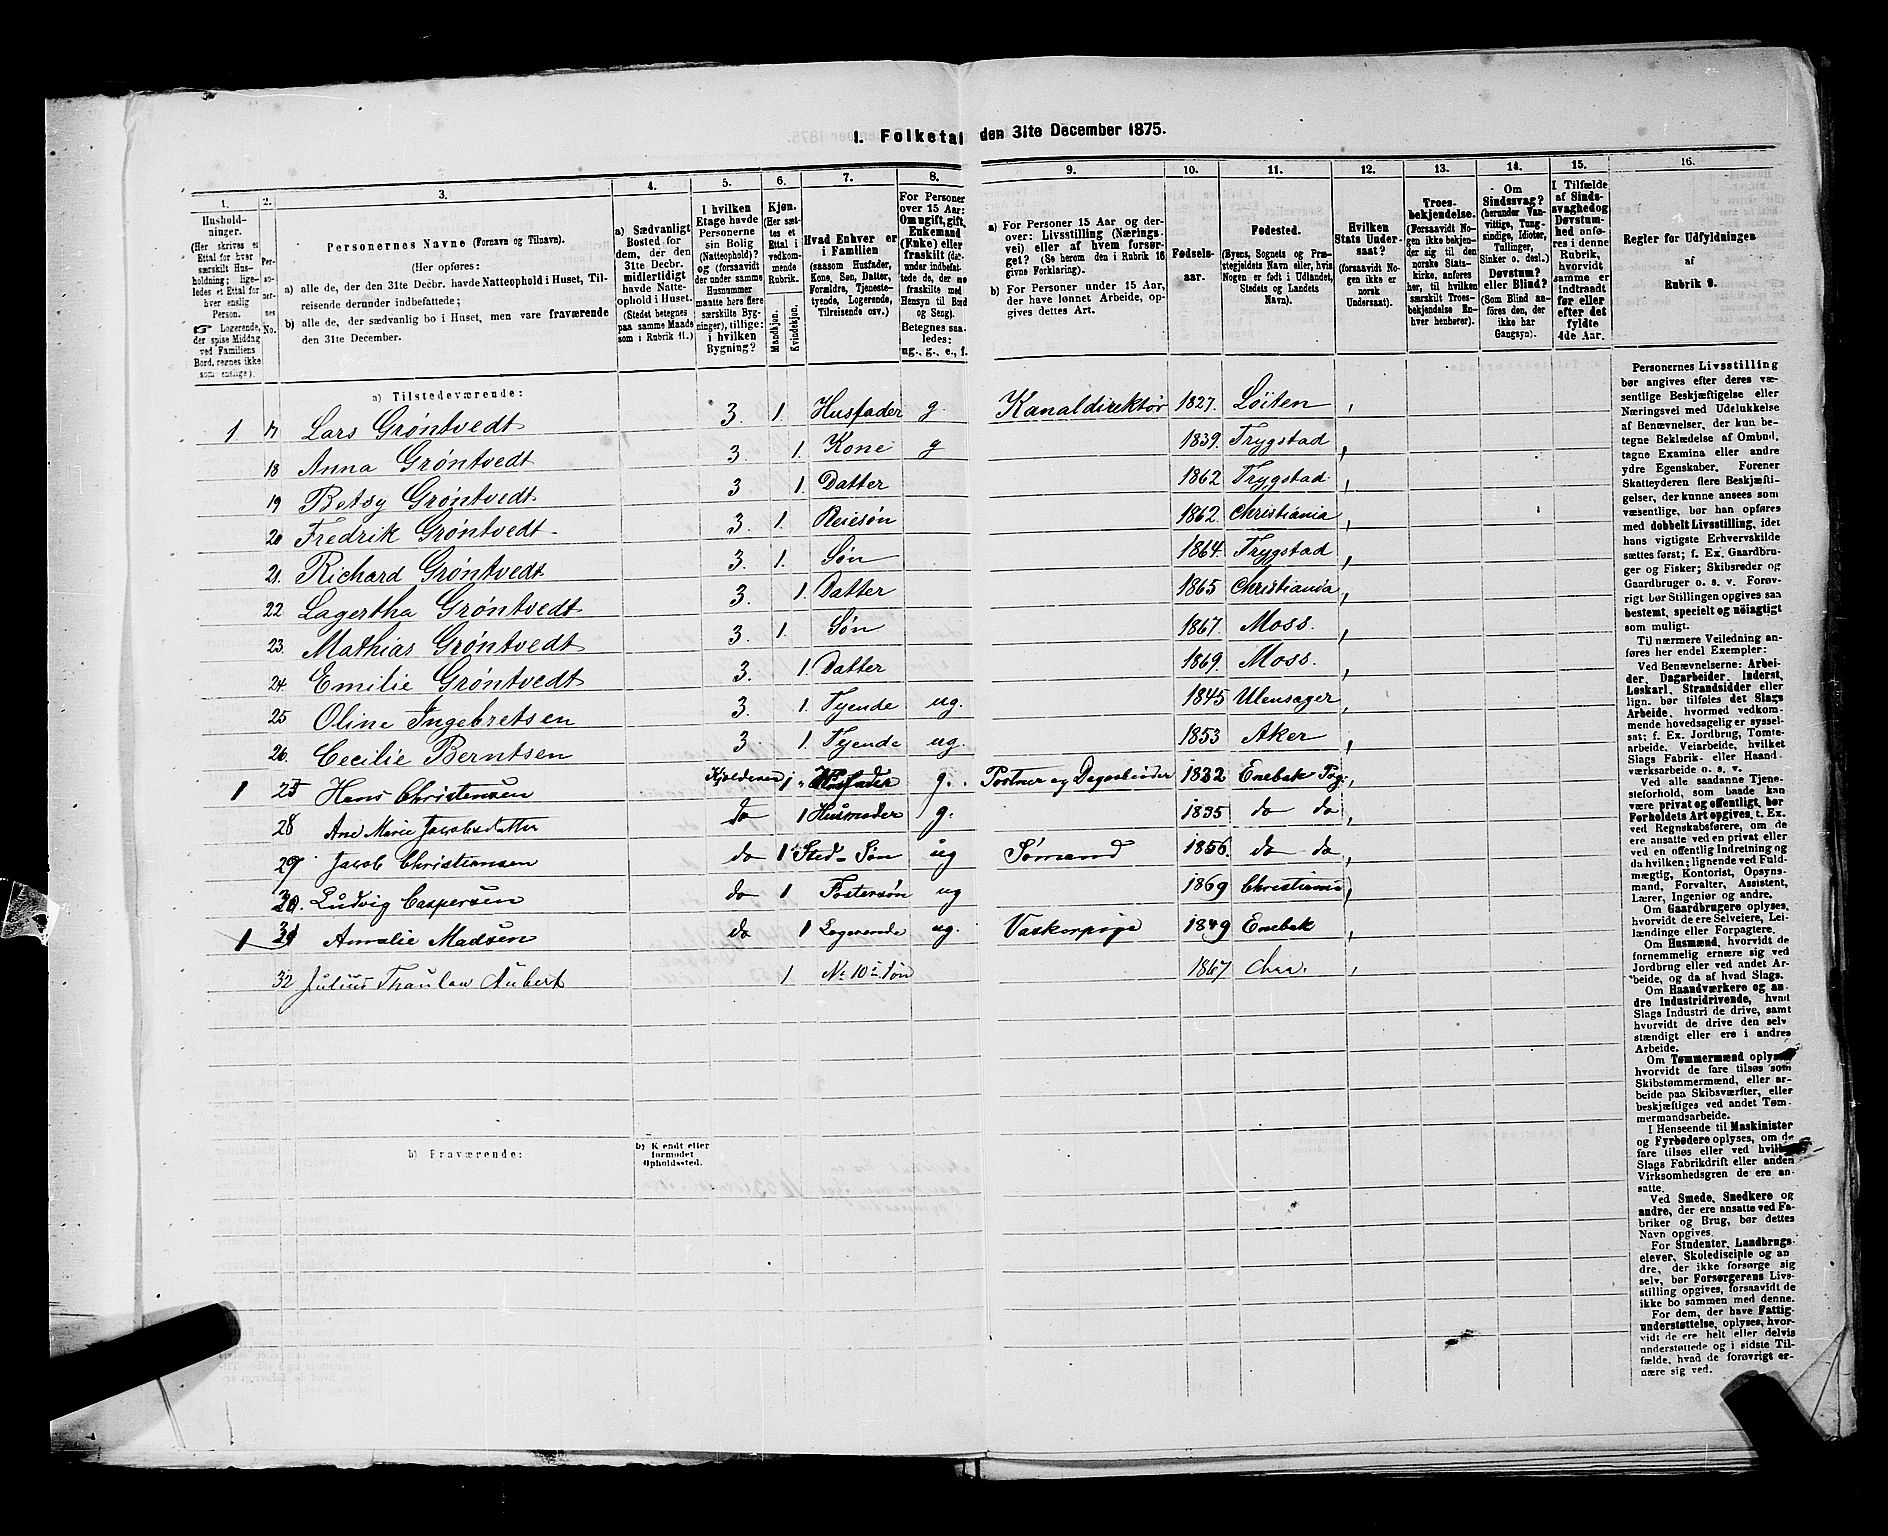 1. Folketal den 31te December 1875.
1. 2. 3. 4. 5. 6. 7. 8. 9. 10. 11. 12. 13. 14. 15. 16.
Hushold-
ninger.
(Her skrives et
Ettal for hver
særskilt Hus-
holdning; lige-
ledes et Ettal for
hver enslig
Person.
☞ Logerende,
der spise Middag
ved Familiens
Bord, regnes ikke
som enslige).
Per-
so-
ner-
nes
No.
Personernes Navne (Fornavn og Tilnavn).
(Her opføres:
a) alle de, der den 31te Decbr. havde Natteophold i Huset, Til-
reisende derunder indbefattede;
b) alle de, der sædvanlig bo i Huset, men vare fraværende
den 31te December.
a) Sædvanligt
Bosted for
dem, der den
31te Decbr.
midlertidigt
havde Natte-
ophold i Huset.
(Stedet betegnes
paa samme Maade
som i Rubrik 11.)
I hvilken
Etage havde
Personerne
sin Bolig
(Natteophold)?
og (forsaavidt
der under samme
Husnummer
maatte høre flere
særskilte Byg-
ninger), tillige:
i hvilken
Bygning?
Kjøn.
(Her sæt-
tes et
Ettal i
vedkom-
mende
Rubrik.
Mandkjøn.
Kvindekjøn.
Hvad Enhver er
i Familien
(saasom Husfader,
Kone, Søn, Datter,
Forældre, Tjeneste-
tyende, Logerende,
Tilreisende osv.)
For Personer
over 15 Aar:
Om ugift, gift,
Enkemand
(Enke) eller
fraskilt (der-
under indbefat-
tede de, der ere
fraskilte med
Hensyn til Bord
og Seng).
Betegnes saa-
ledes:
ug., g., e., f.
a) For Personer 15 Aar og der-
over: Livsstilling (Nærings-
vei) eller af hvem forsør-
get? (Se herom den i Rubrik 16
givne Forklaring).
b) For Personer under 15 Aar,
der have lønnet Arbeide, op-
gives dettes Art.
Fødsels-
aar.
Fødested.
(Byens, Sognets og Præ-
stegjeldets Navn eller, hvis
Nogen er født i Udlandet,
Stedets og Landets
Navn).
Hvilken
Stats Under-
saat?
(forsaavidt No-
gen ikke er
norsk
Undersaat).
Troes-
bekjendelse.
(Forsaavidt No-
gen ikke bekjen-
der sig til den
norske Stats-
kirke, anføres
her, til hvilken
særskilt Troes-
bekjendelse En-
hver henhører).
Om
Sindssvag?
(herunder Van-
vittige, Tung-
sindige, Idioter,
Tullinger,
Sinker o. desl.)
Døvstum?
eller Blind?
(Som Blind an-
føres den, der
ikke har
Gangsyn).
I Tilfælde
af Sinds-
svaghed og
Døvstum-
hed anfø-
res i denne
Rubrik,
hvorvidt
samme er
indtraadt
før eller
efter det
fyldte
4de Aar.
Regler for Udfyldningen
af
Rubrik 9.
a) Tilstedeværende:
1 17 Lars Grøntvedt 3 1. Husfader g. Kanaldirektør 1827. Løiten
18 Anna Grøntvedt 3. 1. Kone g 1839. Trygstad
19 Betsy Grøntvedt 3 1. Datter 1862 Trygstad
20 Fredrik Grøntvedt 3. 1. Pleiesøn 1862. Christiania
21. Richard Grøntvedt 3. 1. Søn 1864. Trygstad
22 Lagertha Grøntvedt 3. 1. Datter 1865 Christiania
23. Mathias Grøntvedt 3. 1. Søn 1867. Moss.
24. Emilie Grøntvedt 3. 1. Datter 1869. Moss.
25 Oline Ingebretsen 3. 1. Tyende ug. 1845 Ulensager
26. Cecilie Berntsen 3. 1. Tyende ug. 1853 Aker
1 27 Hans Christensen Kjelderen 1 Husfader g. Portner og Dagarbeider 1832 Enebak Prg:
28 Ane Marie Jacobsdatter do 1 Husmoder g. 1835 do do
29 Jacob Christiansen do 1 Sted-Søn ug Sømand 1856. do do
30. Ludvig Caspersen do 1 Fostersøn ug 1869 Christiania
1 31 Amalie Madsen do 1 Logerende ug. Vaskerpige 1849 Enebak
32 Julius Thaulow Aubert 1 No 10s Søn 1867 Chra.
b) Fraværende:
b) Kjendt eller
formodet
Opholdssted.
Personernes Livsstilling
bør angives efter deres væ-
sentlige Beskjæftigelse eller
Næringsvei med Udelukkelse
af Benævnelser, der kun be-
tegne Beklædelse af Ombud,
tagne Examina eller andre
ydre Egenskaber. Forener
Skatteyderen flere Beskjæfti-
gelser, der kunne ansees som
væsentlige, bør han opføres
med dobbelt Livsstilling, idet
hans vigtigste Erhvervskilde
sættes først; f. Ex. Gaardbru-
ger og Fisker; Skibsreder og
Gaardbruger o. s. v. Forøv-
rigt bør Stillingen opgives saa
bestemt, specielt og nøiagtigt
som muligt.
Til nærmere Veiledning an-
føres her endel Exempler:
Ved Benævnelserne: Arbei-
der, Dagarbeider, Inderst,
Løskarl, Strandsidder eller
lign. bør tilføies det Slags
Arbeide, hvormed vedkom-
mende hovedsagelig er syssel-
sat; f. Ex. Jordbrug, Tomte-
arbeide, Veiarbeide, hvilket
Slags Fabrik- eller Haand-
værksarbeide o. s. v.
Ved alle saadanne Tjene-
steforhold, som baade kan
være privat og offentligt, bør
Forholdets Art opgives, t. Ex.
ved Regnskabsførere, om de
ere ansatte ved en privat eller
ved en offentlig Indretning og
da hvilken; lignende ved Fuld-
mægtig, Kontorist, Opsyns-
mand, Forvalter, Assistent,
Lærer, Ingeniør og andre.
Om Gaardbrugere oplyses,
hvorvidt de ere Selveiere, Lei-
lændinge eller Forpagtere.
Om Husmænd, hvorvidt de
fornemmelig ernære sig ved
Jordbrug eller ved andet Ar-
beide, og da af hvad Slags.
Om Haandværkere og an-
dre Industridrivende, hvad
Slags Industri de drive, samt
hvorvidt de drive den selv-
stændigt eller ere i andres
Arbeide.
Om Tømmermænd oplyses
hvorvidt de fare tilsøs som
Skibstømmermænd, eller ar-
beide paa Skibsværfter, eller
beskjæftiges ved andet Tøm-
mermandsarbeide.
I Henseende til Maskinister
og Fyrbødere oplyses, om de
fare tilsøs eller ved hvilket
Slags Fabrikdrift eller anden
Virksomhedsgren de ere an-
satte.
Ved Smede, Snedkere og
andre, der ere ansatte ved Fa-
briker og Brug, bør dettes
Navn opgives.
For Studenter, Landbrugs-
elever, Skoledisciple og an-
dre, der ikke forsørge sig
selv, bør Forsørgerens Livs-
stilling opgives, forsaavidt de
ikke bo sammen med denne.
For dem, der have Fattig-
understøttelse, oplyses, hvor-
vidt de ere helt eller delvis
understøttede og i sidste Til-
fælde, hvad de forøvrigt er-
nære sig ved.